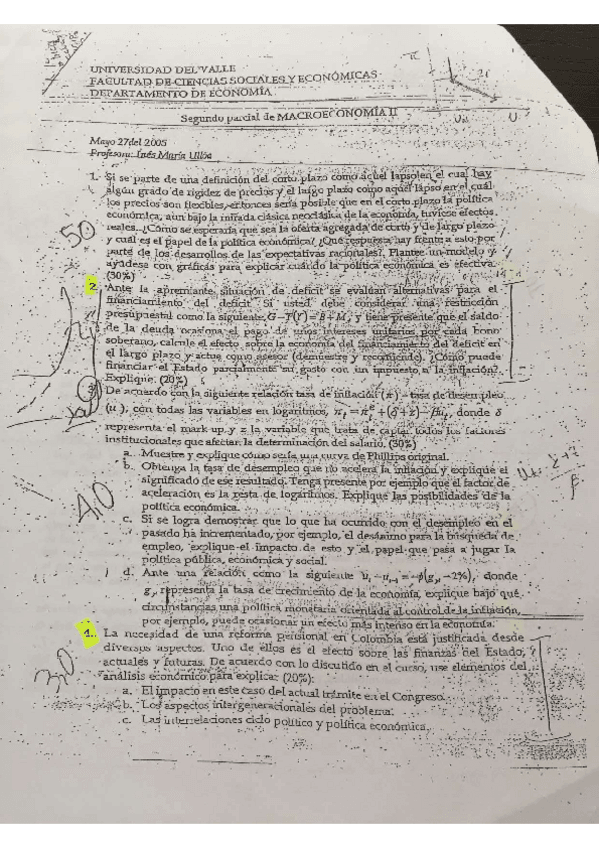 UNIVERSIDAD DEL VALLE
FACULTAD DE CIENCIAS SOCIALES Y ECONÓMICAS
DEPARTAMENTO DE ECONOMÍA
Segundo parcial de MACROECONOMÍA II
Mayo 27 del 2005
Profesora: Inés María Ulloa
1. Si se parte de una definición del corto plazo como aquel lapso en el cual hay
algún grado de rigidez de precios y el largo plazo como aquel lapso en el cuál
los precios son flexibles, entonces sería posible que en el corto plazo la política
económica, aun bajo la mirada clásica neoclásica de la economía, tuviese efectos
reales. ¿Cómo se esperaría que sea la oferta agregada de corto y de largo plazo
y cuál es el papel de la política económica? ¿Qué respuesta hay frente a esto por
parte de los desarrollos de las expectativas racionales? Plantee un modelo y
ayúdese con gráficas para explicar cuándo la política económica es efectiva.
(30%)
50
2. Ante la apremiante situación de déficit se evalúan alternativas para el
financiamiento del déficit. Si usted debe considerar una restricción
presupuestal como la siguiente G-T(Y)=B+M, y tiene presente que el saldo
de la deuda ocasiona el pago de unos intereses unitarios por cada bono
soberano, calcule el efecto sobre la economía del financiamiento del déficit en
el largo plazo y actúe como asesor (demuestre y recomiende). ¿Cómo puede
financiar el Estado parcialmente su gasto con un impuesto a la inflación?
Explique. (20%)
3. De acuerdo con la siguiente relación tasa de inflación (π) – tasa de desempleo
(u), con todas las variables en logaritmos, πt = πt^e + (δ+z) – βut, donde δ
representa el mark up y z la variable que trata de captar todos los factores
institucionales que afectan la determinación del salario. (30%)
a. Muestre y explique cómo sería una curva de Phillips original.
b. Obtenga la tasa de desempleo que no acelera la inflación y explique el
significado de ese resultado. Tenga presente por ejemplo que el factor de
aceleración es la resta de logaritmos. Explique las posibilidades de la
política económica.
40
c. Si se logra demostrar que lo que ha ocurrido con el desempleo en el
pasado ha incrementado, por ejemplo, el desánimo para la búsqueda de
empleo, explique el impacto de esto y el papel que pasa a jugar la
política pública, económica y social.
d. Ante una relación como la siguiente ut – ut-1 = –φ(gy – 2%), donde
gy representa la tasa de crecimiento de la economía, explique bajo qué
circunstancias una política monetaria orientada al control de la inflación,
por ejemplo, puede ocasionar un efecto más intenso en la economía.
1. La necesidad de una reforma pensional en Colombia está justificada desde
diversos aspectos. Uno de ellos es el efecto sobre las finanzas del Estado,
actuales y futuras. De acuerdo con lo discutido en el curso, use elementos del
análisis económico para explicar: (20%):
30
a. El impacto en este caso del actual trámite en el Congreso.
b. Los aspectos intergeneracionales del problema.
c. Las interrelaciones ciclo político y política económica.